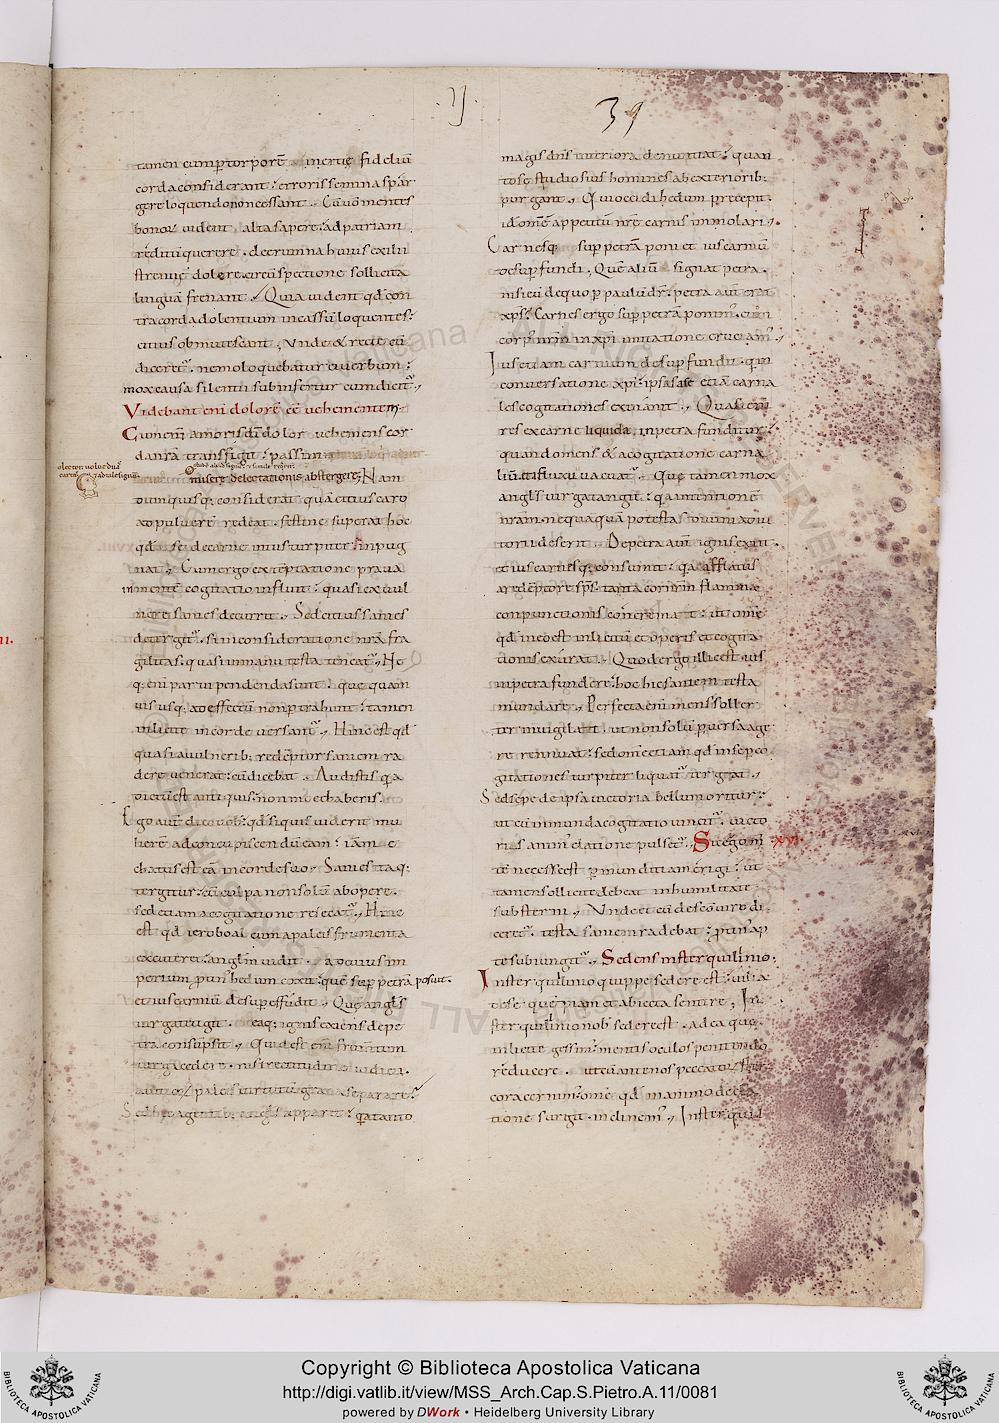 .ij.
39
tamen eum ptorporem inertię fidelium
corda considerant; erroris semina spar
gere loquendo non cessant. Cū uō mentes
bonoꝝ uident alta sapere; ad patriam
reditū querere. de erumna huius exilii
strenuę dolere. circūspectione sollicita
linguā frenant. Quia uident qd con
tra corda dolentium incassū loquentes;
citius obmutescant. Unde & recte cū
diceret. nemo loquebatur ei uerbum;
mox causa silentii subinfertur cum dicit.
Videbant enī dolorē eē uehementem.
Cum enī amoris dī dolor uehemens cor
miserę delectationis abstergere. Nam
unusquisq; considerat quā citius caro
ad puluerem redeat. festine superat hoc
qd de se carne intus turpiter inpug
nat. Cum ergo ex temptatione praua
in mente cogitatio influit; quasi ex uul
nere sanies decurrit. Sed citius sanies
detergit. si in consideratione nrā fra
gilitas. quasi in manu testa teneat. Ne
q; enī paruipendenda sunt; que quam
uis usq; ad effectū non ptrahunt; tamen
inlicite in corde uersant. Hinc est qd
quasi a uulnerib; redēptor saniem ra
dere uenerat; cū dicebat. Audistis qa
dictū est antiquis; non moechaberis.
Ego autē dico uob; qd si quis uiderit mu
lierē ad concupiscendū eam; iam me
chatus est eā in corde suo. Sanies itaq;
tergitur; cū culpa non solū ab opere.
sed etiam a cogitatione resecat. Hinc
est qd ieroboal cum a paleis frumenta
excuteret; anglm uidit. ad cuius im
perium ptin; hedum coxit; quē sup petrā posuit.
et ius carniū desup effudit. Quę angls
uirga tetigit. eaq; ignis exiens de pe
tra consūpsit. Quid est enī frumentum
uirga cedere. nisi rectitudine iudicii.
a uitioꝝ paleis uirtutū grana separare;
Sed hec agentib; angls apparet; qa tanto
magis dns interiora denuntiat; quan
to se studiosius homines ab exteriorib;
purgant. Qui occidi hedum precepit.
id ÷ omē appetitū nre carnis immolari.
Carnesq; sup petrā poni et ius carniū
desup fundi. Quē aliū signat petra.
nisi eū de quo p paulū dr. petra autē erat
xps. Carnes ergo sup petrā ponim; cum
corp; nrm in xpi imitatione cruciam;
Ius etiam carnium desup fundit. qui
conuersatione xpi; ipsas a se etiā carna
les cogitationes exinanit. Quasi enī
res ex carne liquida. in petra funditur;
quando mens & a cogitationū carna
liū effluxu uacuat. Que tamen mox
angls uirga tangit; qa intentionē
nram. nequaquā potestas diuini adiu
torii deserit. De petra autē ignis exiit.
et ius carnesq; consumit; qa afflatus
a redēptore sps. tanta cor nrm flamma
conpunctionis concremat; ut omē
qd in eo est inliciti et operis et cogita
tionis exurat. Quod ergo illic est ius
in petra fundere; hoc hic saniem testa
mundare. Perfecta enī mens soller
ter inuigilat; ut non solū puersa age
re rennuat; sed omē etiam qd in se p co
gitationes turpiter liquat. tergat.
Sed sepe de ipsa uictoria bellum oritur;
ut cū inmunda cogitatio uincit. uicto
ris anim; elatione pulset. Sic ergo m̄ .XVI.
tē necesse est p munditiam erigi; ut
tamen sollicite debeat in humilitate
substerni. Unde et cū de scō uiro di
ceret. testa saniem radebat; ptin; ap
te subiungit. Sedens in sterquilinio.
In sterquilinio quippe sedere est; uilia
de se quempiam et abiecta sentire. In
sterquilinio nob sedere est. ad ea que
inlicite gessim; mentis oculos penitendo
reducere. ut cū ante nos peccatoꝝ ster
cora cernim; omē qd in animo de ela
tione surgit. inclinem;. In sterquil
Copyright © Biblioteca Apostolica Vaticana
http://digi.vatlib.it/view/MSS_Arch.Cap.S.Pietro.A.11/0081
powered by DWork • Heidelberg University Library